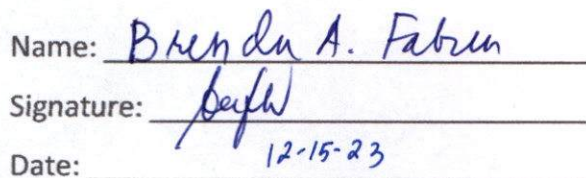 Name: Brenda A.
Signature:
Date: 12-15-23